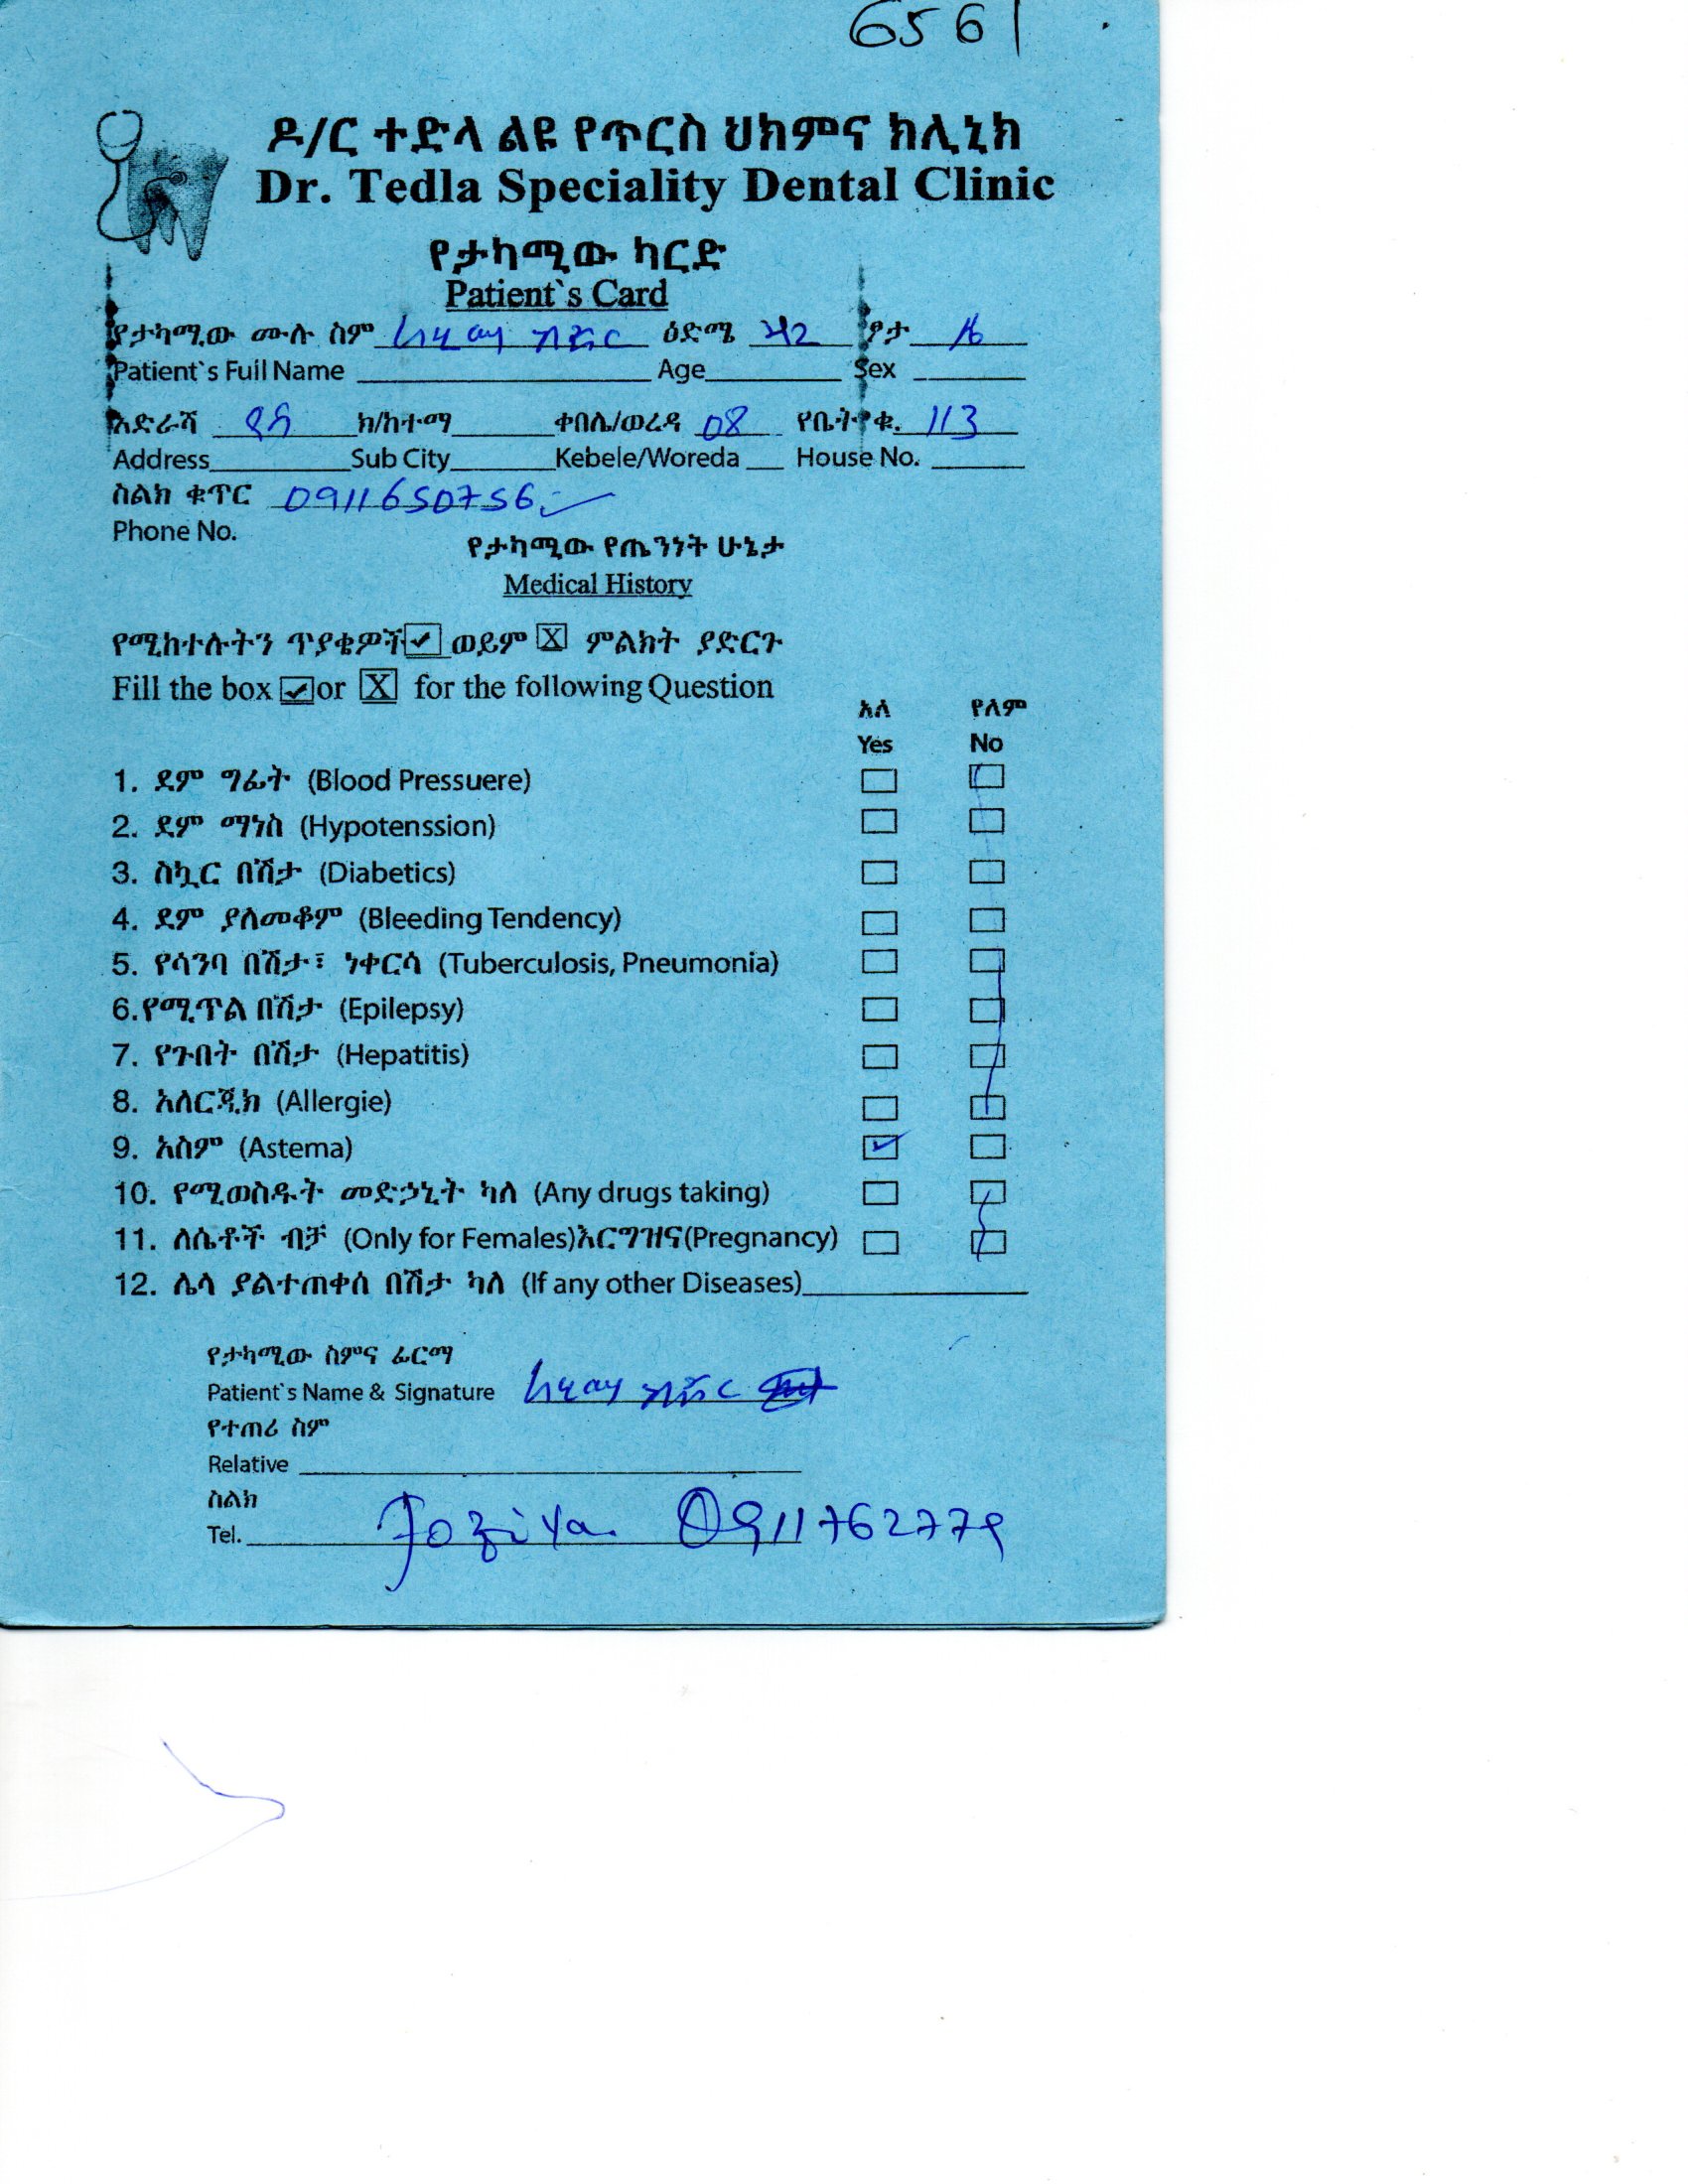 6561
ዶ/ር ተድላ ልዩ የጥርስ ህክምና ክሊኒክ
Dr. Tedla Speciality Dental Clinic
የታካሚው ካርድ
Patient`s Card
የታካሚው ሙሉ ስም ዕድሜ 42 ፆታ
Patient`s Full Name Age Sex
አድራሻ ክ/ከተማ ቀበሌ/ወረዳ 08 የቤት ቁ. 113
Address Sub City Kebele/Woreda House No.
ስልክ ቁጥር 0911650756
Phone No.
የታካሚው የጤንነት ሁኔታ
Medical History
የሚከተሉትን ጥያቄዎች ወይም X ምልክት ያድርጉ
Fill the box or X for the following Question
አለ የለም
Yes No
1. ደም ግፊት (Blood Pressuere)
2. ደም ማነስ (Hypotenssion)
3. ስኳር በሽታ (Diabetics)
4. ደም ያለመቆም (Bleeding Tendency)
5. የሳንባ በሽታ፣ ነቀርሳ (Tuberculosis, Pneumonia)
6.የሚጥል በሽታ (Epilepsy)
7. የጉበት በሽታ (Hepatitis)
8. አለርጂክ (Allergie)
9. አስም (Astema)
10. የሚወስዱት መድኃኒት ካለ (Any drugs taking)
11. ለሴቶች ብቻ (Only for Females)እርግዝና(Pregnancy)
12. ሌላ ያልተጠቀሰ በሽታ ካለ (If any other Diseases)
የታካሚው ስምና ፊርማ
Patient`s Name & Signature
የተጠሪ ስም
Relative
ስልክ
Tel. Foziya 0911762779